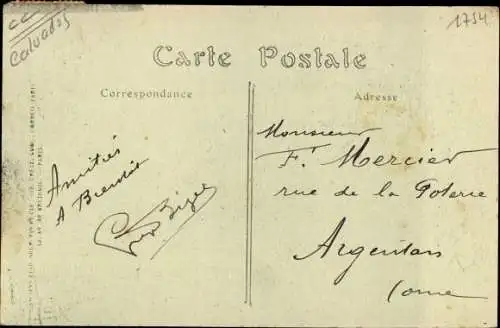 Calvados
1754
Carte Postale
Correspondance
Adresse
Amitiés
A Bientôt
Monsieur
F. Mercier
rue de la Poterie
Argentan
Orne